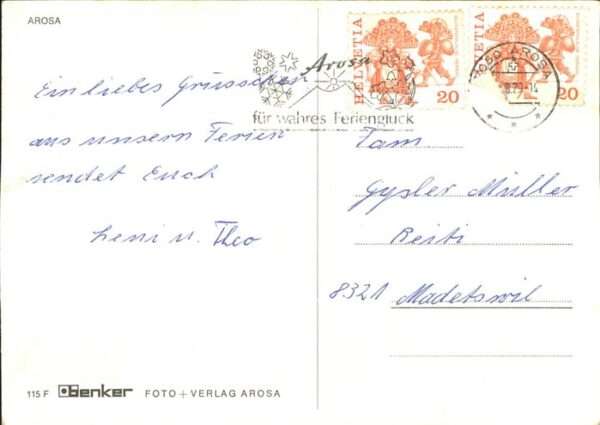 AROSA
Ein liebes Grüsschen
aus unsern Ferien
sendet Euch
Leni u. Theo
Arosa
für wahres Ferienglück
HELVETIA 20
HELVETIA 20
7050 AROSA
Fam.
Gysler Müller
Reiti
8321 Madetswil
115 F benker FOTO + VERLAG AROSA